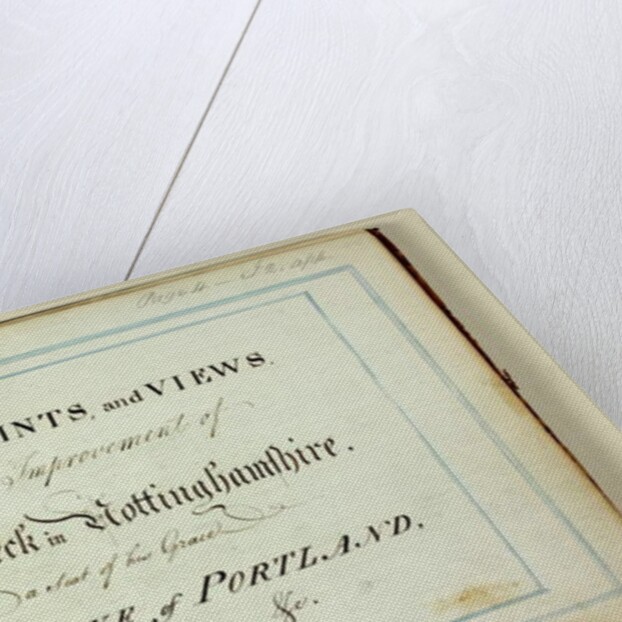 INTS, and VIEWS.
Improvement of
eck in Nottinghamshire.
a Seat of his Grace
KE, of PORTLAND.
&c.